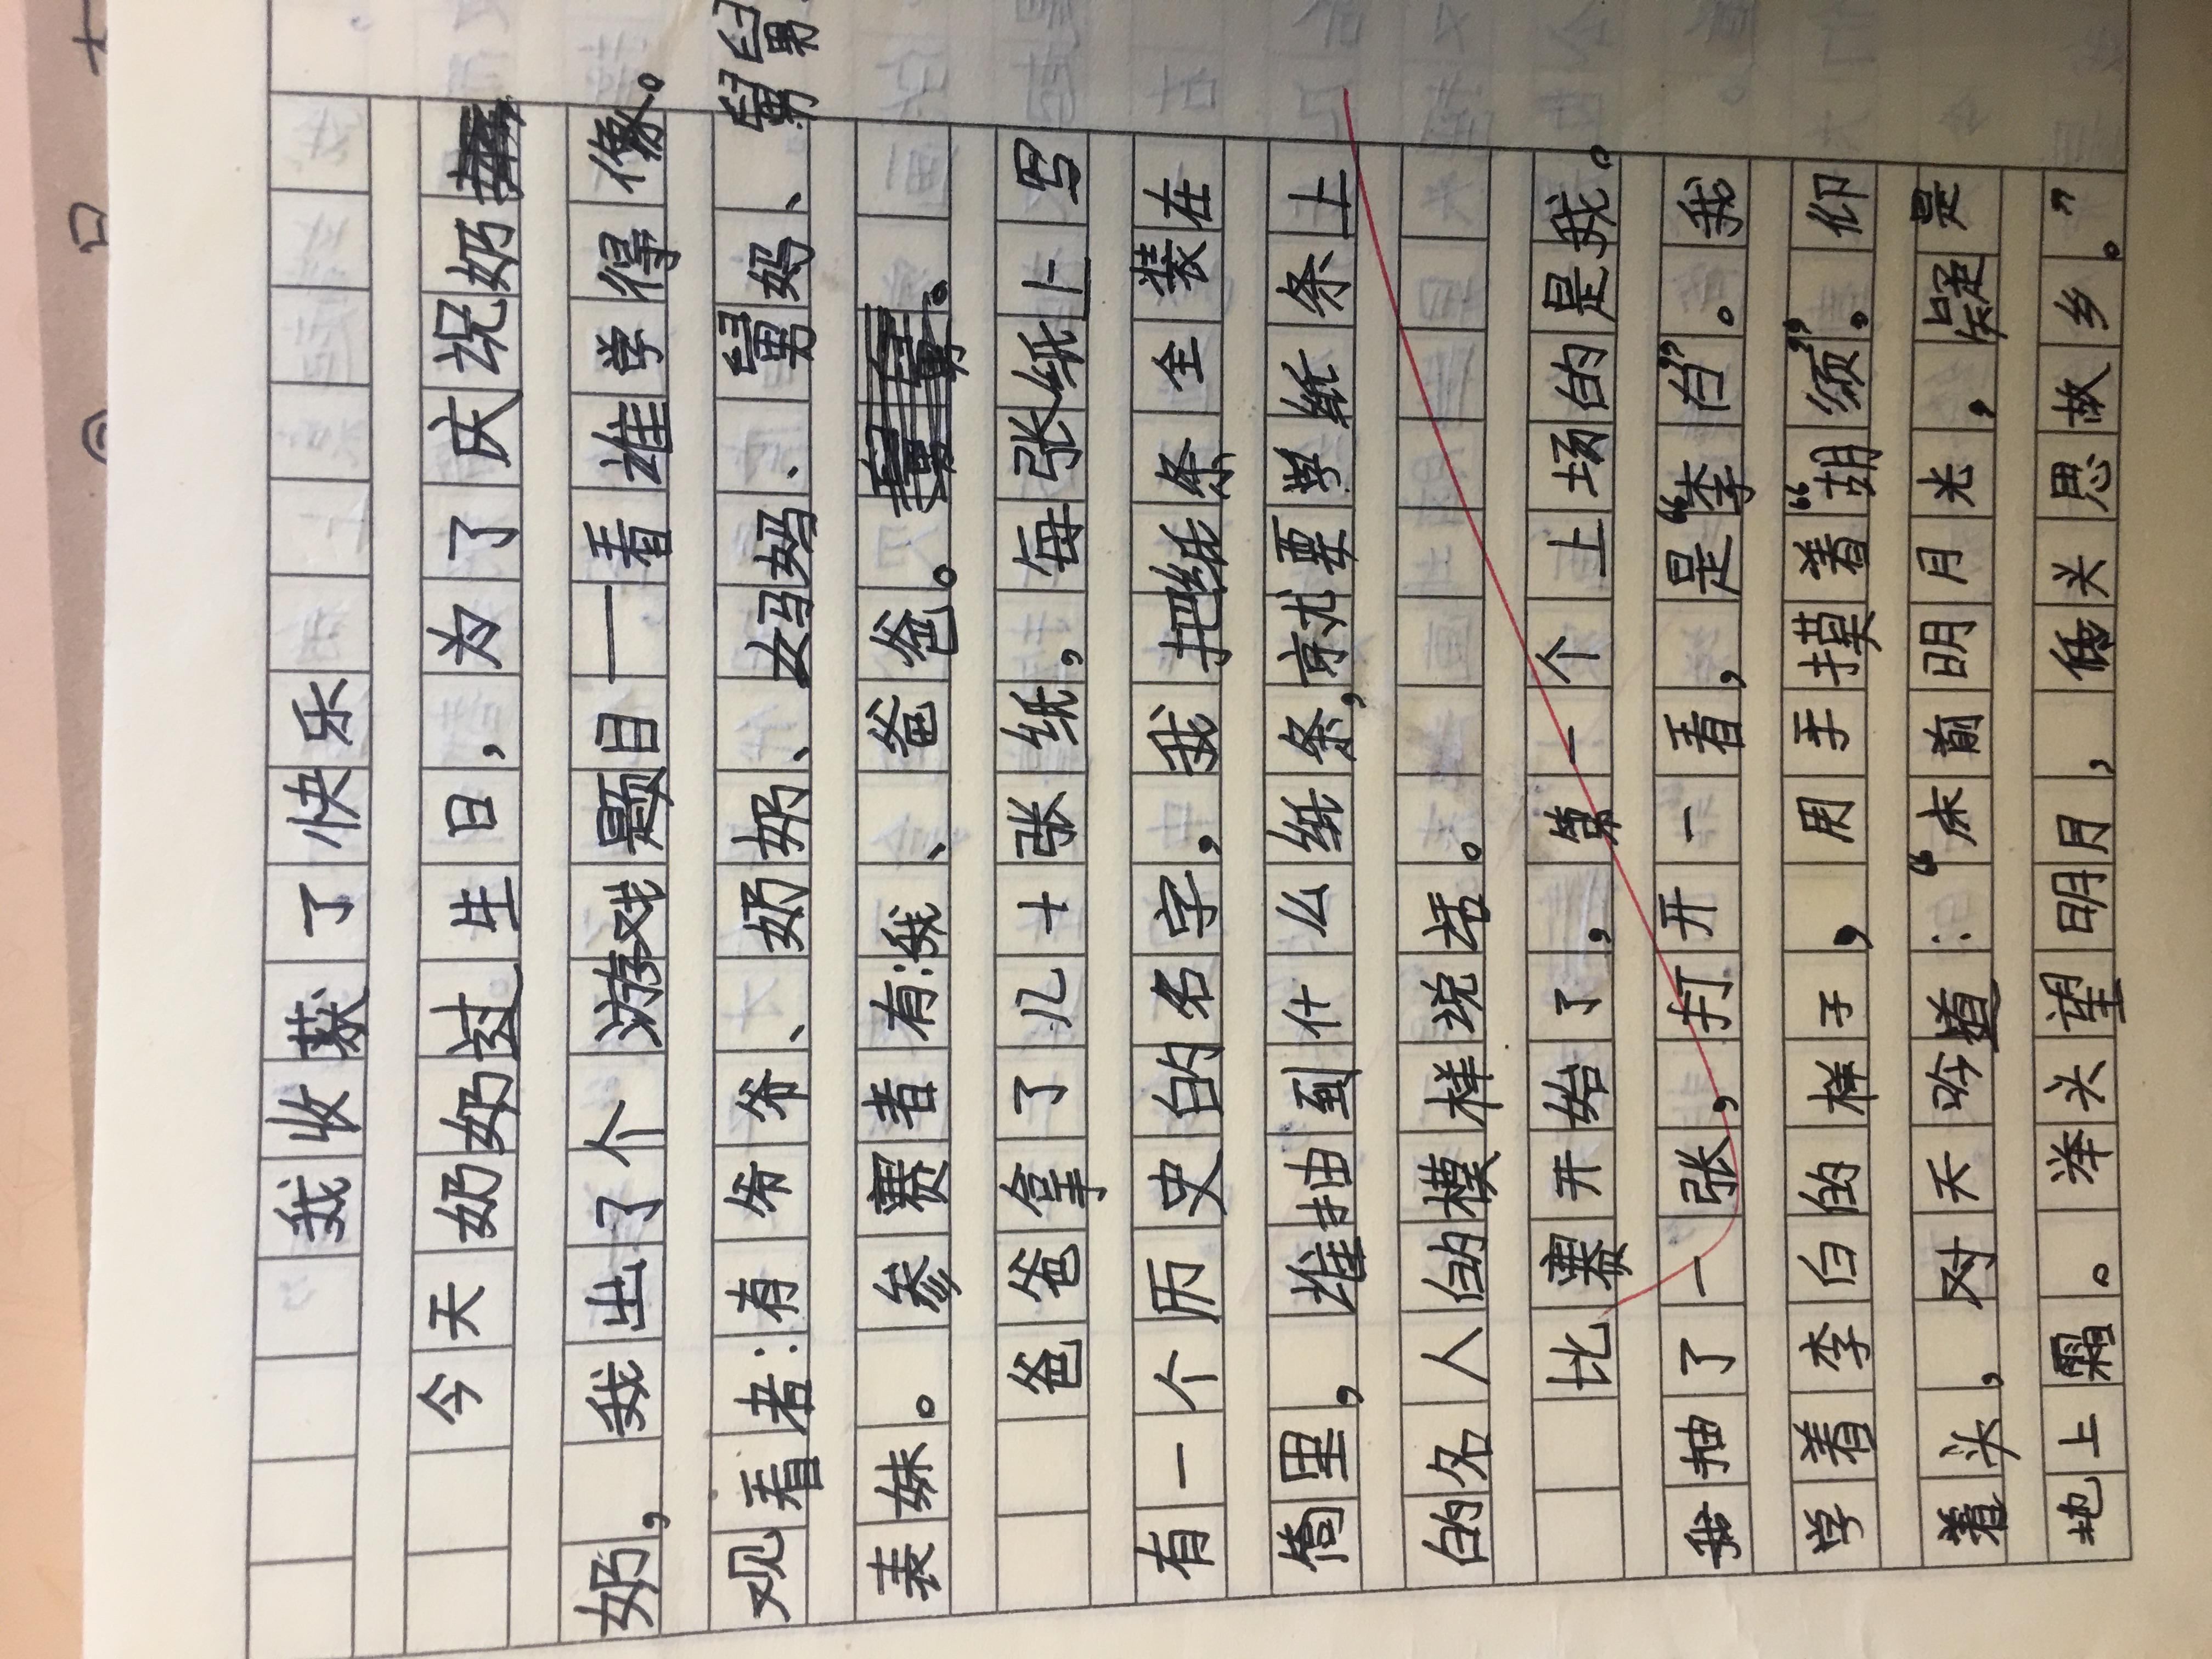 我收获了快乐
今天奶奶过生日，为了庆祝奶
奶，我出了个游戏题目——看谁学得像。
观看者：有爷爷、奶奶、妈妈、舅妈、舅舅
表妹。参赛者有：我、爸爸。
爸爸拿了几十张纸，每张纸上写
有一个历史的名字，我把纸条全装在
筒里，谁抽到什么纸条，就要学纸条上
的名人的模样说话。
比赛开始了，第一个上场的是我。
我抽了一张，打开一看，是“李白”。我
学着李白的样子，用手摸着“胡须”，仰
着头，对天吟道：“床前明月光，疑是
地上霜。举头望明月，低头思故乡。”